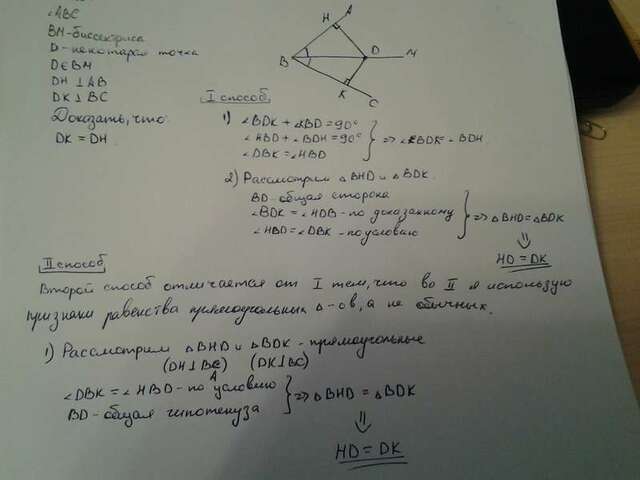 ∠ABC
BM-биссектриса
D-некоторая точка
D∈BM
DH ⊥ AB
DK ⊥ BC
Доказать, что
DK = DH
A
H
B
D
M
K
C
I способ
1) ∠BDK + ∠KBD = 90°
∠HBD + ∠BDH = 90°
∠DBK = ∠HBD
=> ∠BDK = BDH
2) Рассмотрим △BHD и △BDK.
BD-общая сторона
∠BDK = ∠HDB - по доказанному
∠HBD = ∠DBK - по условию
=> △BHD = △BDK
⇓
HD = DK
II способ
Второй способ отличается от I тем, что во II я использую
признаки равенства прямоугольных △-ов, а не обычных.
1) Рассмотрим △BHD и △BDK - прямоугольные
(DH⊥BA) (DK⊥BC)
∠DBK = ∠HBD - по условию
BD-общая гипотенуза
=> △BHD = △BDK
⇓
HD = DK